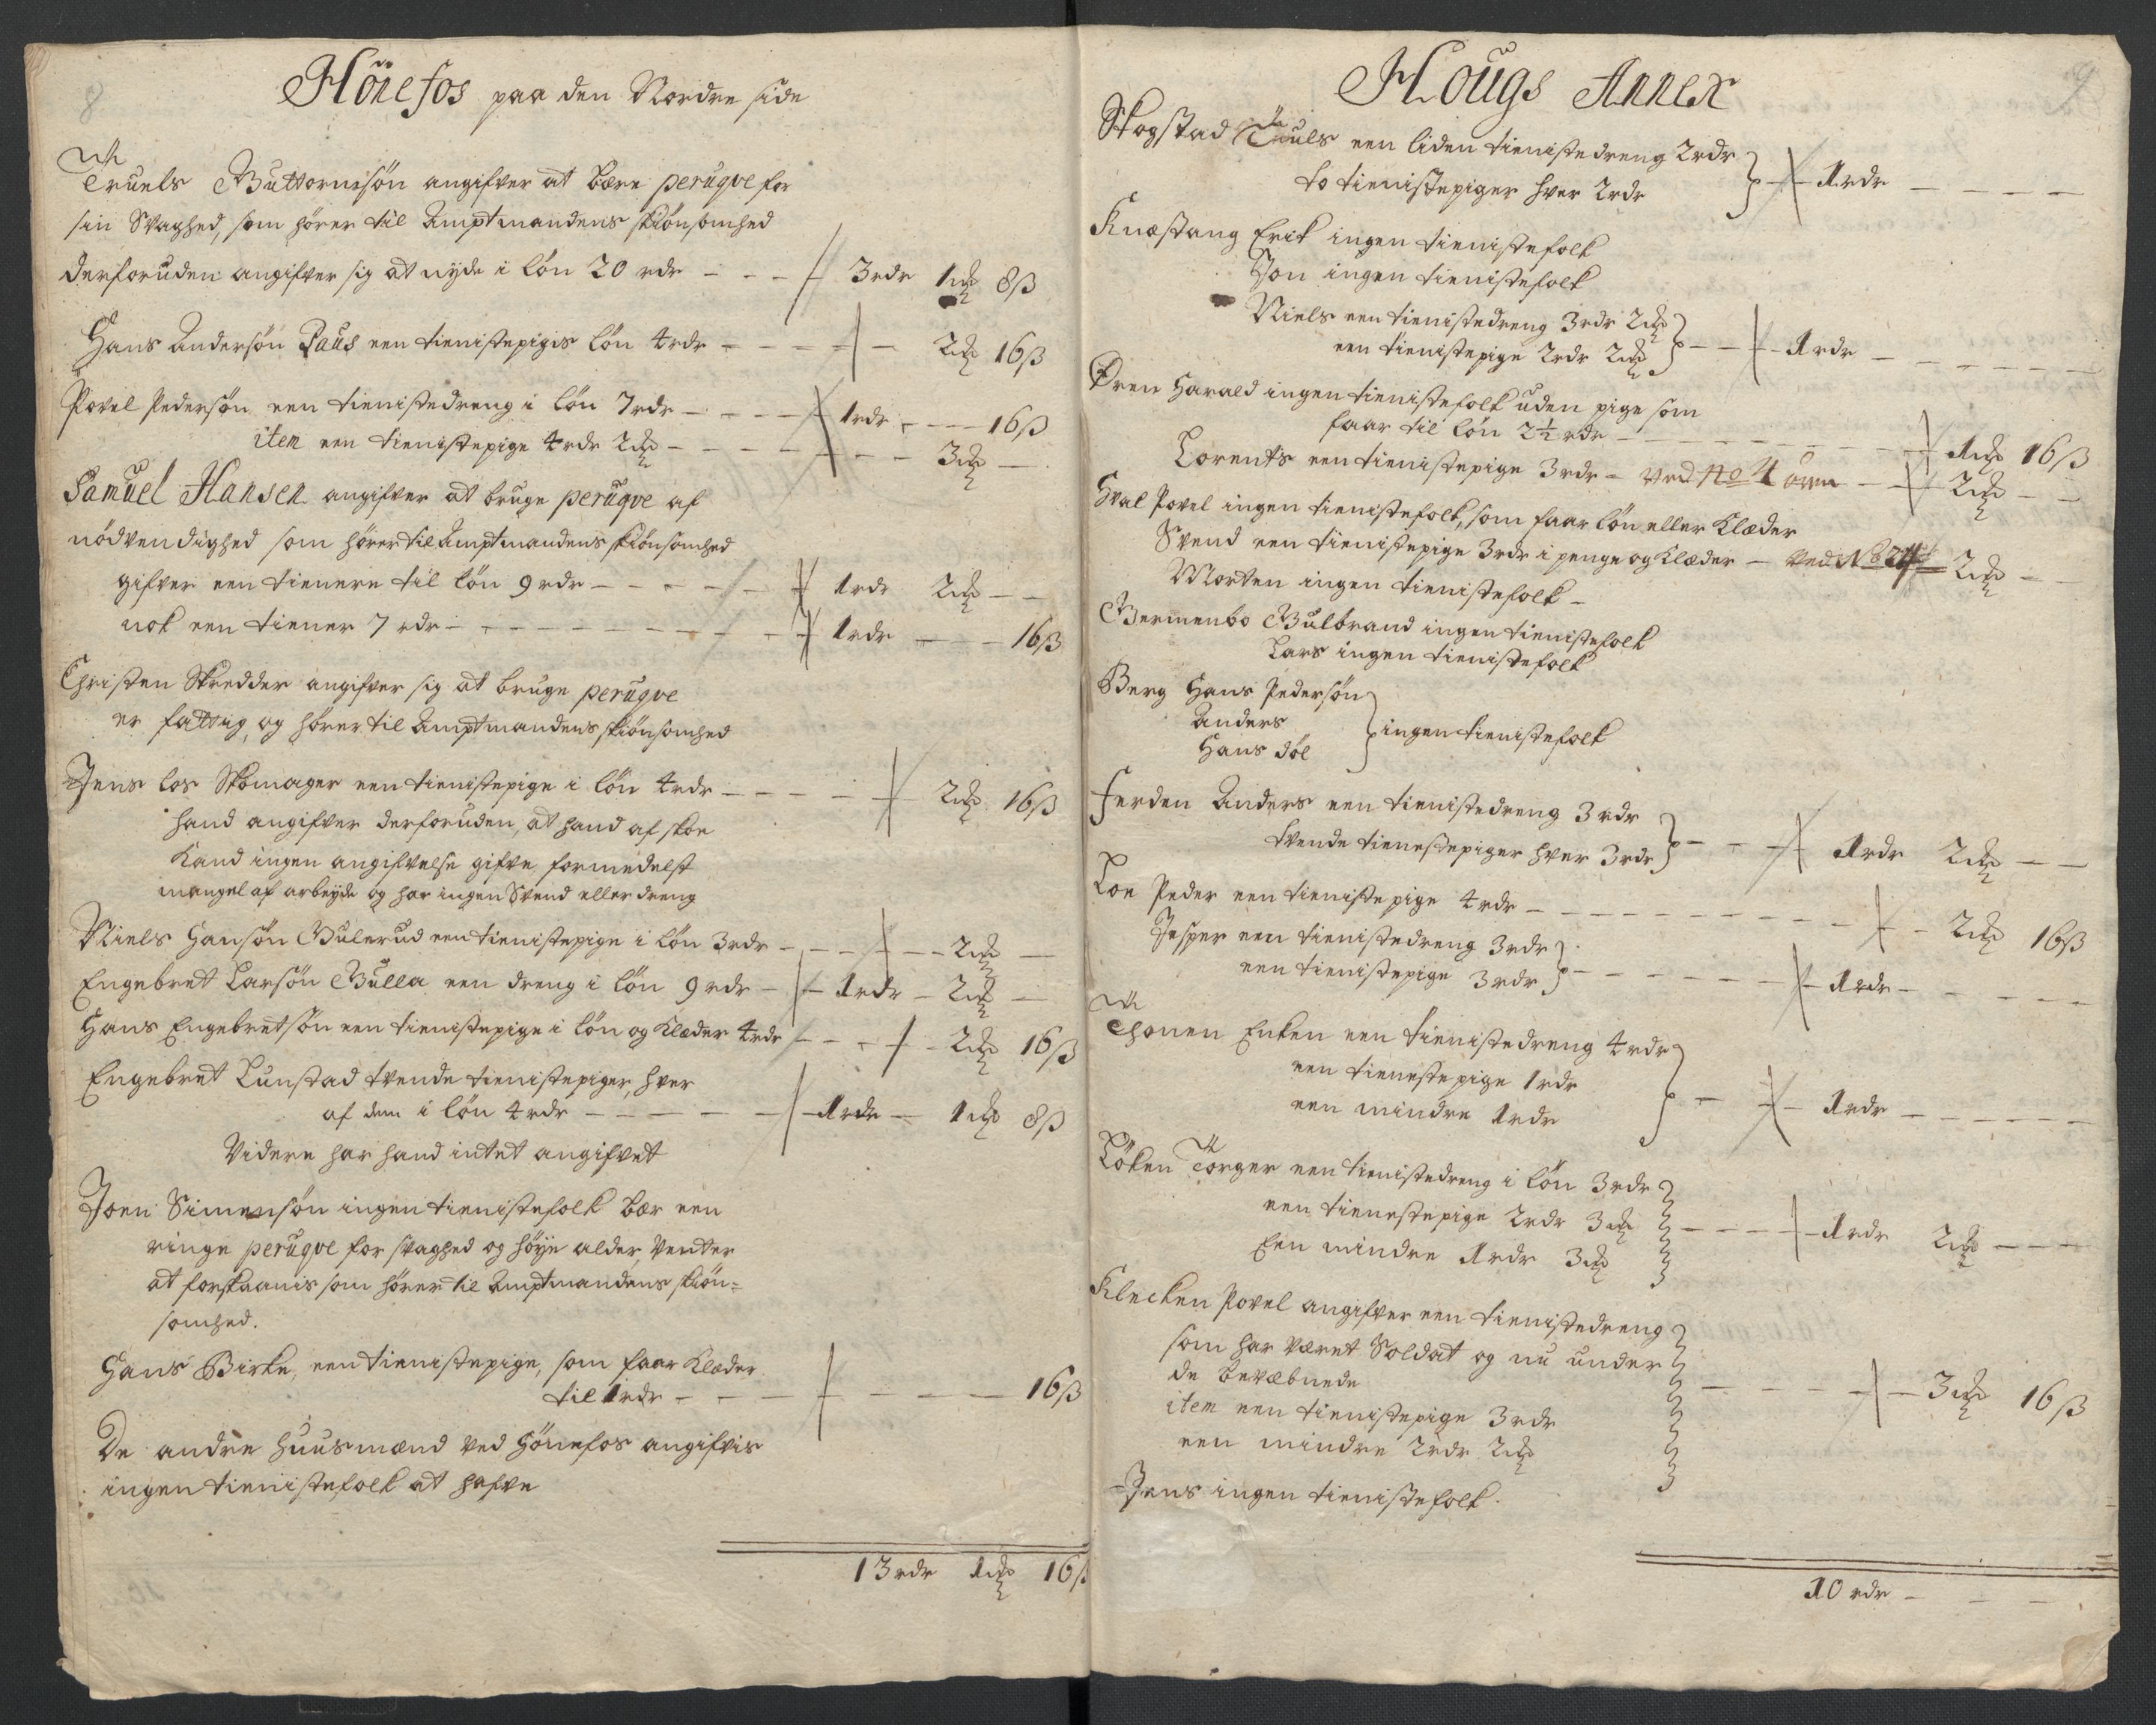 8
Hönefos paa den Nordre side
Truels Guttormsøn angifver at bære peruqve for
sin Svaghed, som hører til Amptmandens skiønsomhed
derforuden angifver sig at nyde i løn 20 rdr - - - 3 rdr 1 mk 8 ß
Hans Andersøn Paus een tienistepigis løn 4 rdr - - - 2 mk 16 ß
Povel Pedersøn een tienistedreng i løn 7 rdr - - - 1 rdr - - 16 ß
item een tienistepige 4 rdr 2 mk - - - 3 mk -
Samuel Hansen angifver at bruge peruqve af
nödvendighed som hører til Amptmandens skiønsomhed
gifver een tienere til løn 9 rdr - - - 1 rdr 2 mk - -
nok een tiener 7 rdr - - - 1 rdr - - 16 ß
Christen Skredder angifver sig at bruge peruqve
er fattig, og hører til Amptmandens skiønsomhed
Jens los Skomager een tienistepige i løn 4 rdr - - - 2 mk 16 ß
hand angifver derforuden, at hand af skoe
Kand ingen angifvelse gifve formedelst
mangel af arbeyde og har ingen Svend eller dreng
Niels Hansøn Bulerud een tienistepige i løn 3 rdr - - - 2 mk -
Engebret Larsøn Bulla een dreng i løn 9 rdr - 1 rdr - 2 mk -
Hans Engebretsøn een tienistepige i løn og Klæder 4 rdr - - - 2 mk 16 ß
Engebret Lunstad tvende tienistepiger, hver
af dem i løn 4 rdr - - - 1 rdr - 1 mk 8 ß
Videre har hand intet angifvet
Joen Simensøn ingen tienistefolk bær een
ringe peruqve for svaghed og høye alder, venter
at forskaanis som hører til Amptmandens skiøn=
somhed.
Hans Birke, een tienistepige, som faar Klæder
til 1 rdr - - - 16 ß
De andre huusmænd ved Hönefos angifvis
ingen tienistefolk at hafve
13 rdr 1 mk 16 ß
9
Hougs Annex
Skogstad Truls een liden tienistedreng 2 rdr
to tienistepiger hver 2 rdr - 1 rdr - - -
Knæstang Erik ingen tienistefolk
Jon ingen tienistefolk
Niels een tienistedreng 3 rdr 2 mk
een tienistepige 2 rdr 2 mk - - 1 rdr - - -
Øren Harald ingen tienistefolk uden pige som
faar til løn 2½ rdr - - - 1 mk 16 ß
Lorents een tienistepige 3 rdr - ved No 4 - - 2 mk - -
Hval Povel ingen tienistefolk, som faar løn eller Klæder
Svend een tienistepige 3 rdr i penge og Klæder - ved No 2 - 2 mk - -
Morten ingen tienistefolk -
Germenbo Gulbrand ingen tienistefolk
Lars ingen tienistefolk
Berg Hans Pedersøn
Anders
Hans döl
ingen tienistefolk
Ferden Anders een tienistedreng 3 rdr
tvende tienestepiger hver 3 rdr - - - 1 rdr 2 mk - -
Loe Peder een tienistepige 4 rdr - - - 2 mk 16 ß
Jesper een tienistedreng 3 rdr
een tienistepige 3 rdr - - - 1 rdr - - -
Thonen Enken een tienistedreng 4 rdr
een tienestepige 1 rdr
een mindre 1 rdr - - 1 rdr - - -
Löken Torger een tienistedreng i løn 3 rdr
een tienestepige 2 rdr 3 mk
Een mindre 1 rdr 3 mk - - - 1 rdr 2 mk - - -
Klecken Povel angifver een tienistedreng
som har været Soldat og nu under
de bevæbnede
item een tienistepige 3 rdr
een mindre 2 rdr 2 mk - - - 3 mk 16 ß
Jens ingen tienistefolk.
10 rdr - - -